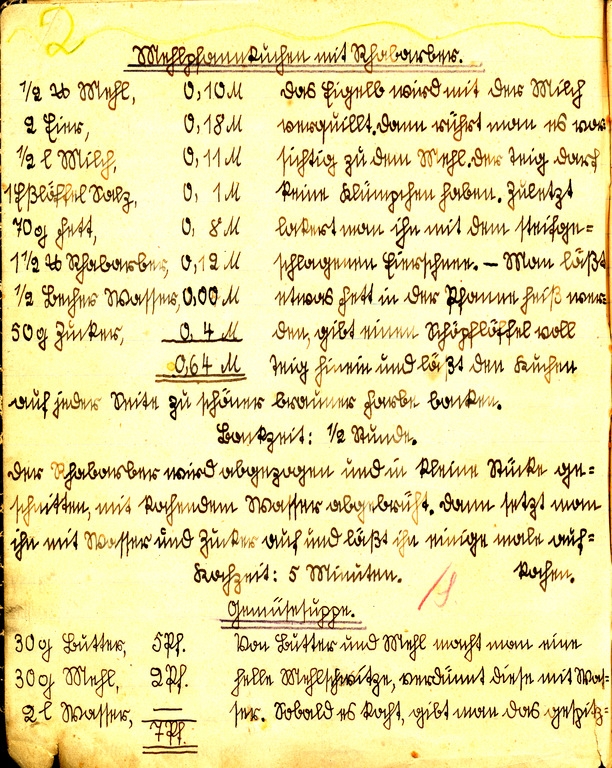 2
Mehlpfannkuchen mit Rhabarber.
1/2 ℔ Mehl, 0,10 M das Eigelb wird mit der Milch
2 Eier, 0,18 M verquillt. Dann rührt man es vor
1/2 l Milch, 0,11 M sichtig zu dem Mehl. der Teig darf
1 Eßlöffel Salz, 0, 1 M keine Klümpchen haben. Zuletzt
70 g Fett, 0, 8 M lakert man ihn mit dem steifge=
1 1/2 ℔ Rhabarber, 0,12 M schlagenen Eierschnee. — Man läßt
1/2 Becher Wasser, 0,00 M etwas Fett in der Pfanne heiß wer=
50 g Zucker, 0, 4 M den, gibt einen Schöpflöffel voll
0,64 M Teig hinein und läßt den Kuchen
auf jeder Seite zu schöner brauner Farbe backen.
Backzeit: 1/2 Stunde.
der Rhabarber wird abgezogen und in kleine Stücke ge=
schnitten, mit kochendem Wasser abgebrüht. Dann setzt man
ihn mit Wasser und Zucker auf und läßt ihn einige male auf=
Kochzeit: 5 Minuten. kochen.
Gemüsesuppe.
30 g Butter, 5 Pf. Von Butter und Mehl macht man eine
30 g Mehl, 2 Pf. helle Mehlschwitze, verdünnt diese mit Was=
2 l Wasser, — ser. Sobald es kocht, gibt man das geputz=
7 Pf.